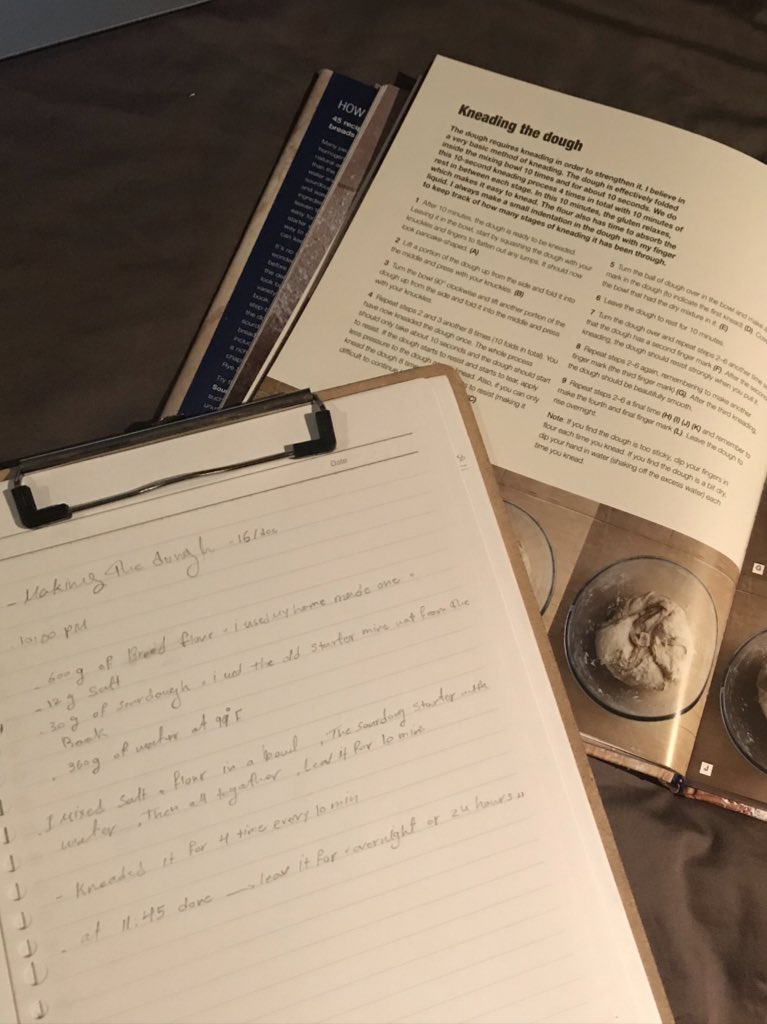 HOW
45 reci
breads
Many pe
homogen
natural
than the
water an
sourdou
and wat
ingredie
leaven
easy for
starter
way to
can kee
It's no
wonde
before
the de
look b
variety
book,
step b
the d
sourd
brea
inclu
a rich
chap
Rye
Try
Sour
such
unus
Kneading the dough
The dough requires kneading in order to strengthen it. I believe in
a very basic method of kneading. The dough is effectively folded
inside the mixing bowl 10 times and for about 10 seconds. We do
this 10-second kneading process 4 times in total with 10 minutes of
rest in between each stage. In this 10 minutes, the gluten relaxes,
which makes it easy to knead. The flour also has time to absorb the
liquid. I always make a small indentation in the dough with my finger
to keep track of how many stages of kneading it has been through.
1 After 10 minutes, the dough is ready to be kneaded.
Leaving it in the bowl, start by squashing the dough with your
knuckles and fingers to flatten out any lumps. It should now
look pancake-shaped. (A)
2 Lift a portion of the dough up from the side and fold it into
the middle and press with your knuckles. (B)
3 Turn the bowl 90° clockwise and lift another portion of the
dough up from the side and fold it into the middle and press
with your knuckles.
4 Repeat steps 2 and 3 another 8 times (10 folds in total). You
have now kneaded the dough once. The whole process
should only take about 10 seconds and the dough should start
to resist. If the dough starts to resist and starts to tear, apply
less pressure to the dough
knead. Also, if you can only
knead the dough 8
to resist (making it
difficult to continue
C)
5 Turn the ball of dough over in the bowl and make
mark in the dough (to indicate the first knead). (D)
the bowl that had the dry mixture in it. (E)
6 Leave the dough to rest for 10 minutes.
7 Turn the dough over and repeat steps 2–6 another time
that the dough has a second finger mark (F). After the second
kneading, the dough should resist strongly when you pull it.
8 Repeat steps 2–6 again, remembering to make another
finger mark (the third finger mark) (G). After the third kneading,
the dough should be beautifully smooth.
9 Repeat steps 2–6 a final time (H) (I) (J) (K) and remember to
make the fourth and final finger mark (L). Leave the dough to
rise overnight.
Note: If you find the dough is too sticky, dip your fingers in
flour each time you knead. If you find the dough is a bit dry,
dip your hand in water (shaking off the excess water) each
time you knead.
G
J
Date
- Making The dough - 16/dec
. 10:00 PM
- 600g of Bread flour . i used my home made one .
- 12g Salt
. 30g of sourdough . i used the old starter mine not from the
Book
. 360g of water at 99°F
. I mixed salt & flour in a bowl , The sourdoug starter with
water , Then all together , Leav it for 10 mins
- Kneaded it for 4 time every 10 min
. at 11:45 done → leav it for overnight or 24 hours